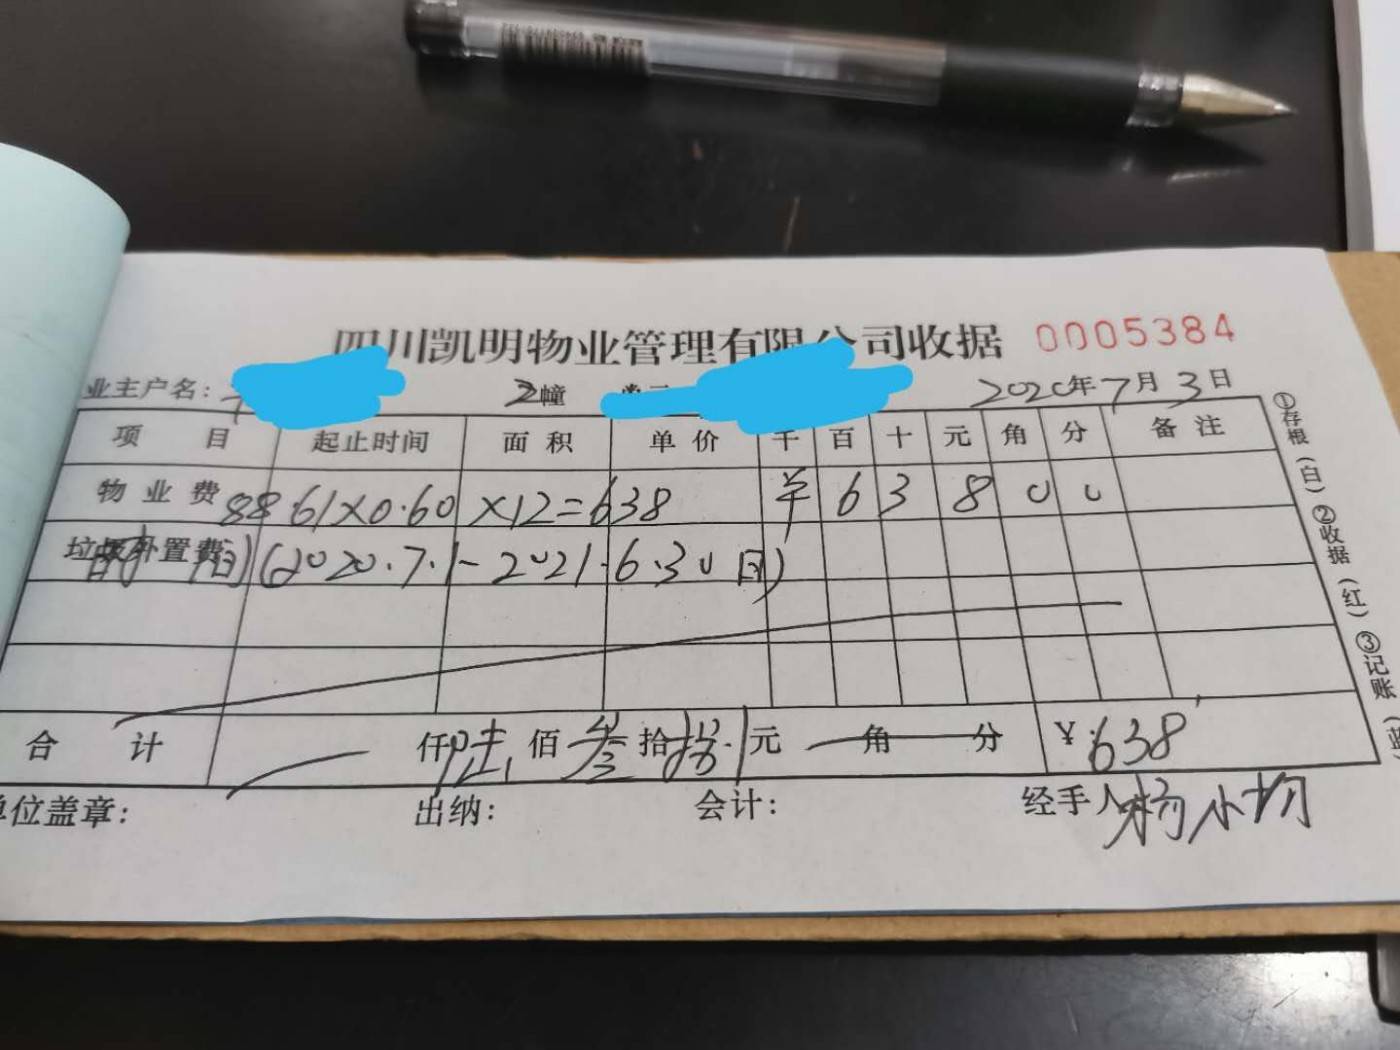 四川凯明物业管理有限公司收据 0005384
业主户名： 2幢 单元 2020年7月3日
项目 起止时间 面积 单价 千 百 十 元 角 分 备注
物业费 88.61×0.60×12=638 ¥ 6 3 8 0 0
垃圾处置费 时间(2020.7.1-2021.6.30日)
合计 仟陆佰叁拾捌元 角 分 ¥:638
单位盖章： 出纳： 会计： 经手人
①存根(白)②收据(红)③记账(蓝)